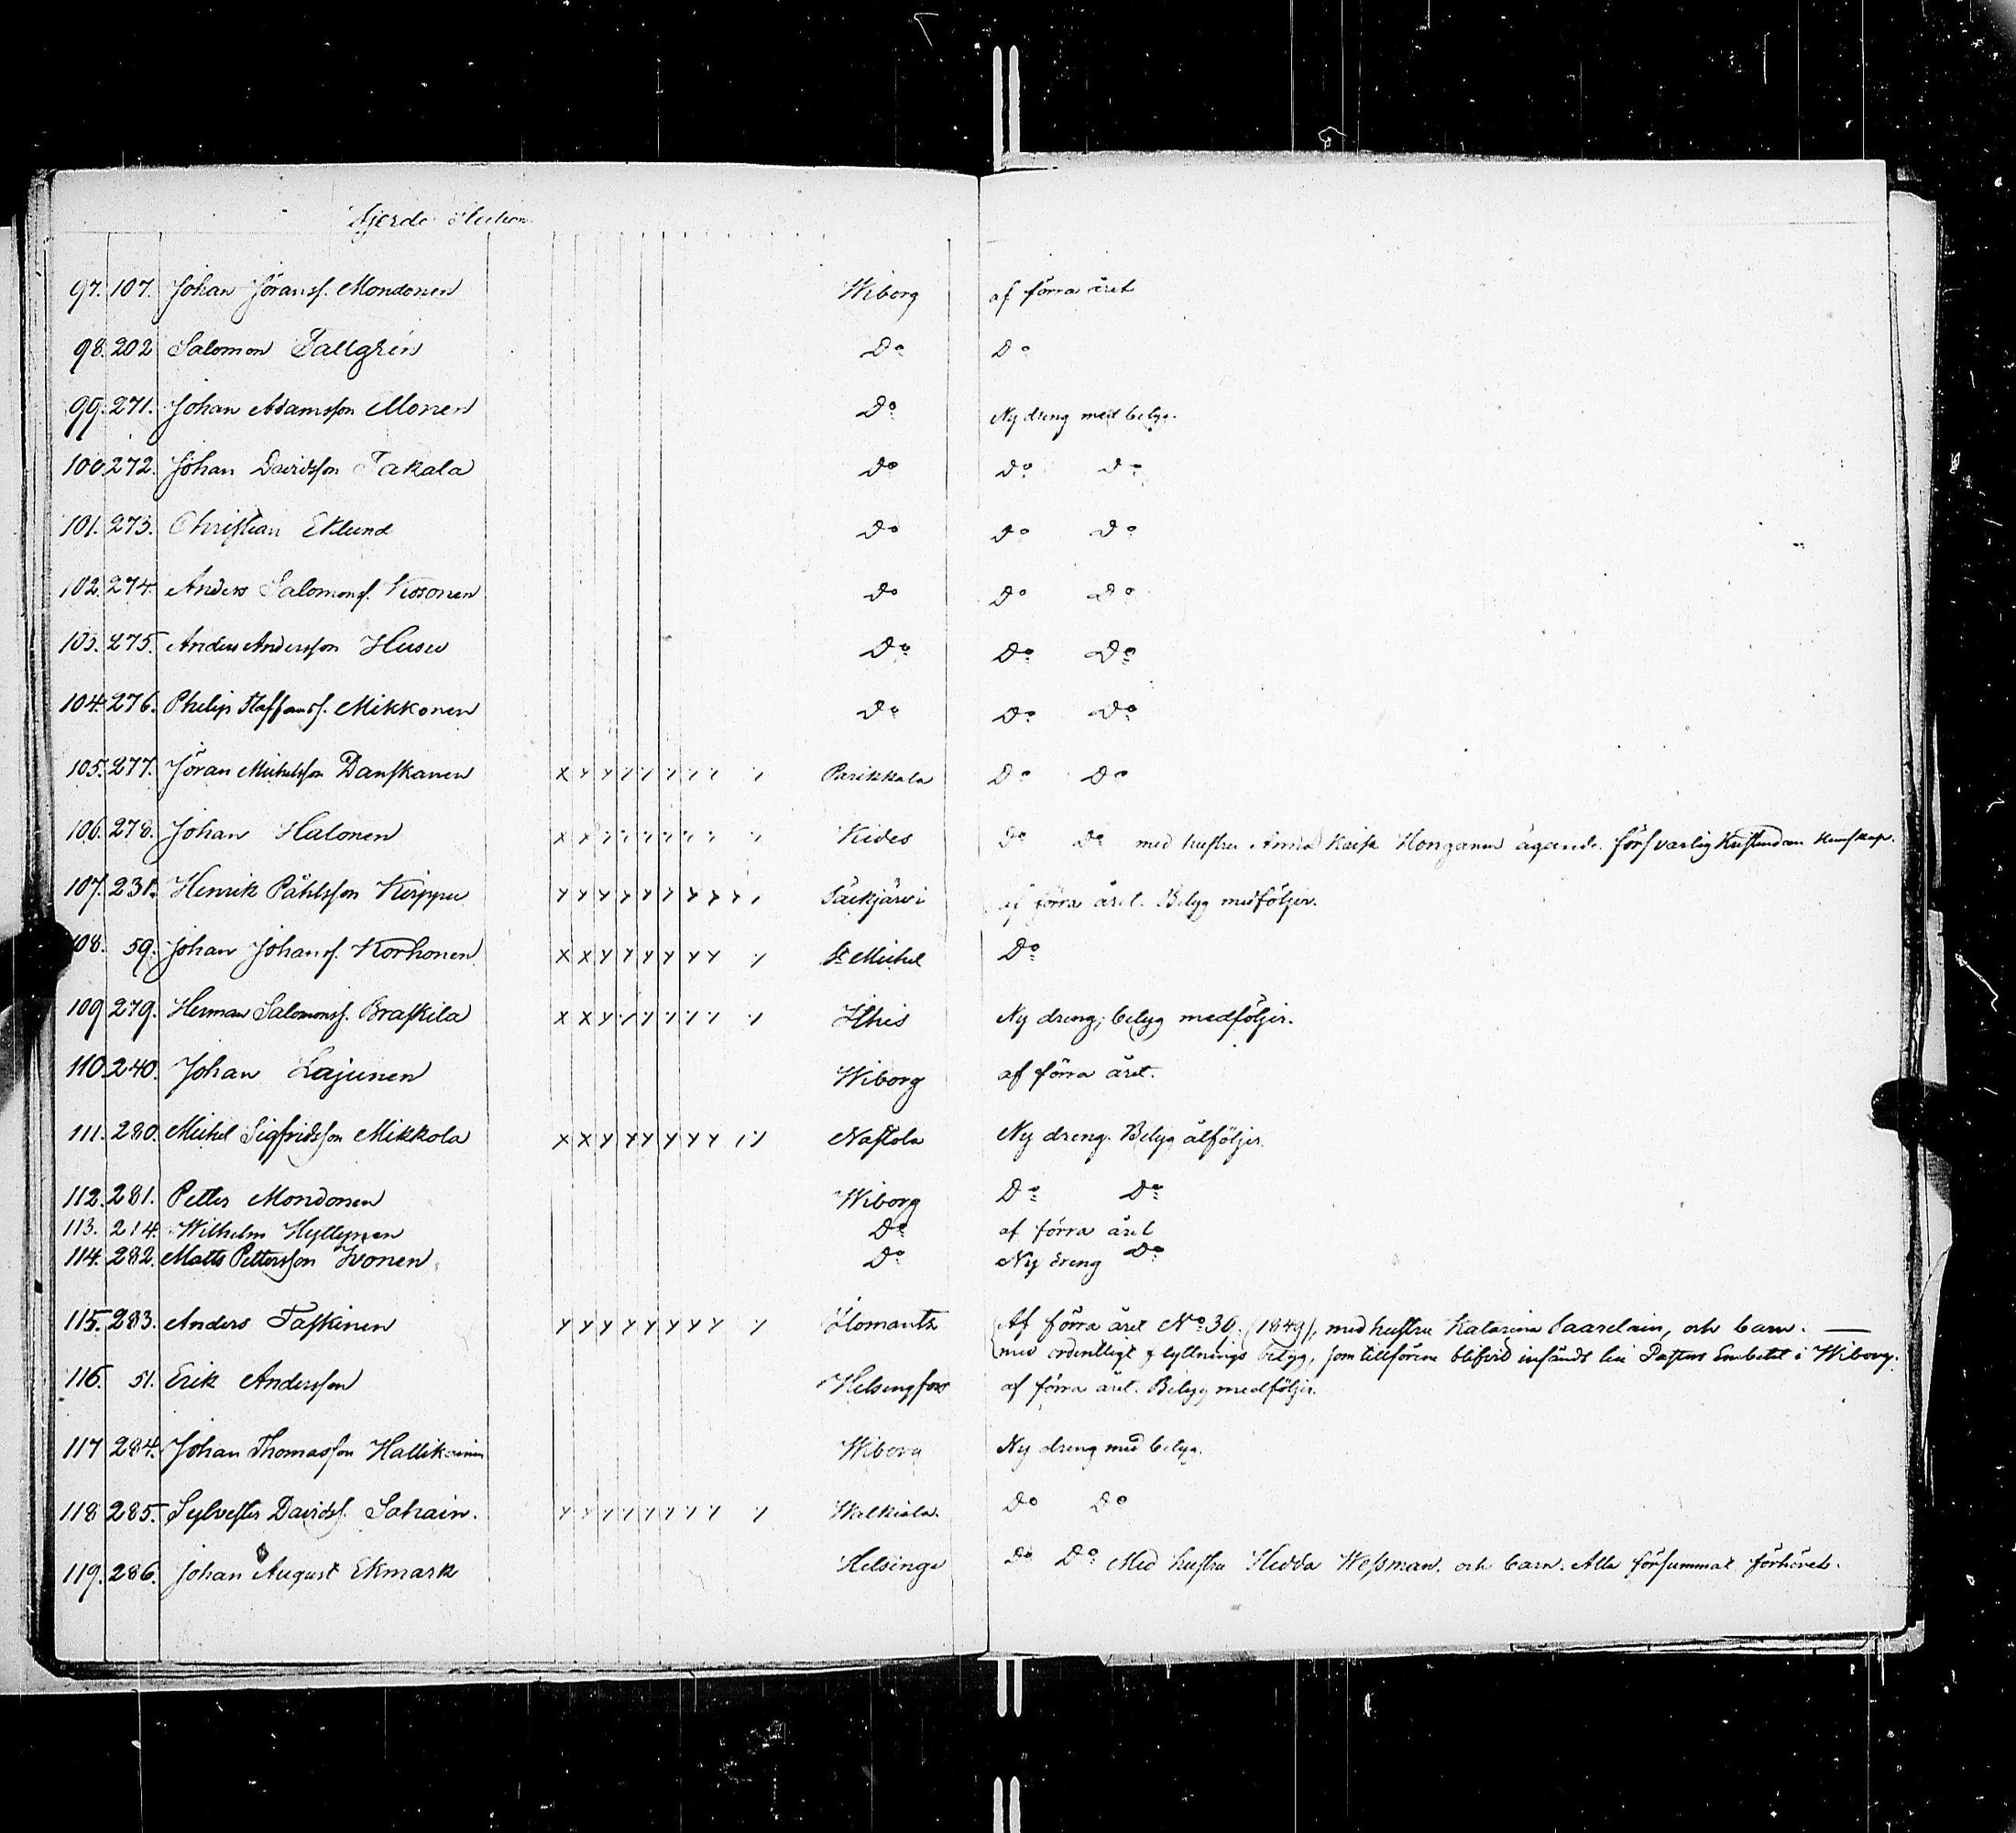 Fjerde Section
97. 107. Johan Jöransf. Mondonen Wiborg af förra året
98. 202 Salomon Tallgrén Do Do
99. 271. Johan Adamsson Monen Do Ny dreng med belyg.
100. 272. Johan Davidsson Takala Do Do Do
101. 273. Christian Eklund Do Do Do
102. 274. Anders Salomonsf. Kosonen Do Do Do
103. 275. Anders Andersson Husu Do Do Do
104. 276. Philip Staffansf. Mikkonen Do Do Do
105. 277. Jöran Michelsson Danskanen Parikkala Do Do
106. 278. Johan Halonen Kides Do Do med hustru Anna Honganen ägande försvarlig Kristendoms Kunskap.
107. 231. Henrik Påhlsson Kirppu Säckjärvi af förra året. Belyg medföljer.
108. 59. Johan Johansf. Korhonen St Michel Do
109 279. Herman Salomonsf. Braskila Ithis Ny dreng; belyg medföljer.
110. 240. Johan Lajunen Wiborg af förra året.
111. 280. Michel Sigfridsson Mikkola Nastola Ny dreng. Belyg åtföljer.
112. 281. Petter Mondonen Wiborg Do Do
113. 214. Wilhelm Hyttynen Do af förra året
114. 282. Matts Pettersson Ivonen Do Ny dreng Do
115. 283. Anders Taskinen Ilomants Af förra året No 30. (1849), med hustru Katarina Saarelain, och barn. —
med ordentligt flyttnings betyg, som tillförene blifvit insändt till Pastors Embetet i Wiborg.
116. 51. Erik Andersson Helsingfors af förra året. Belyg medföljer.
117 284. Johan Thomasson Hallikainen Wiborg Ny dreng med belyg.
118 285. Sylvester Davidsf. Sahain. Walkiala. Do Do
119. 286. Johan August Ekmark Helsinge Do Do Med hustru Hedda Wessman. och barn. Alla försummat förhöret.